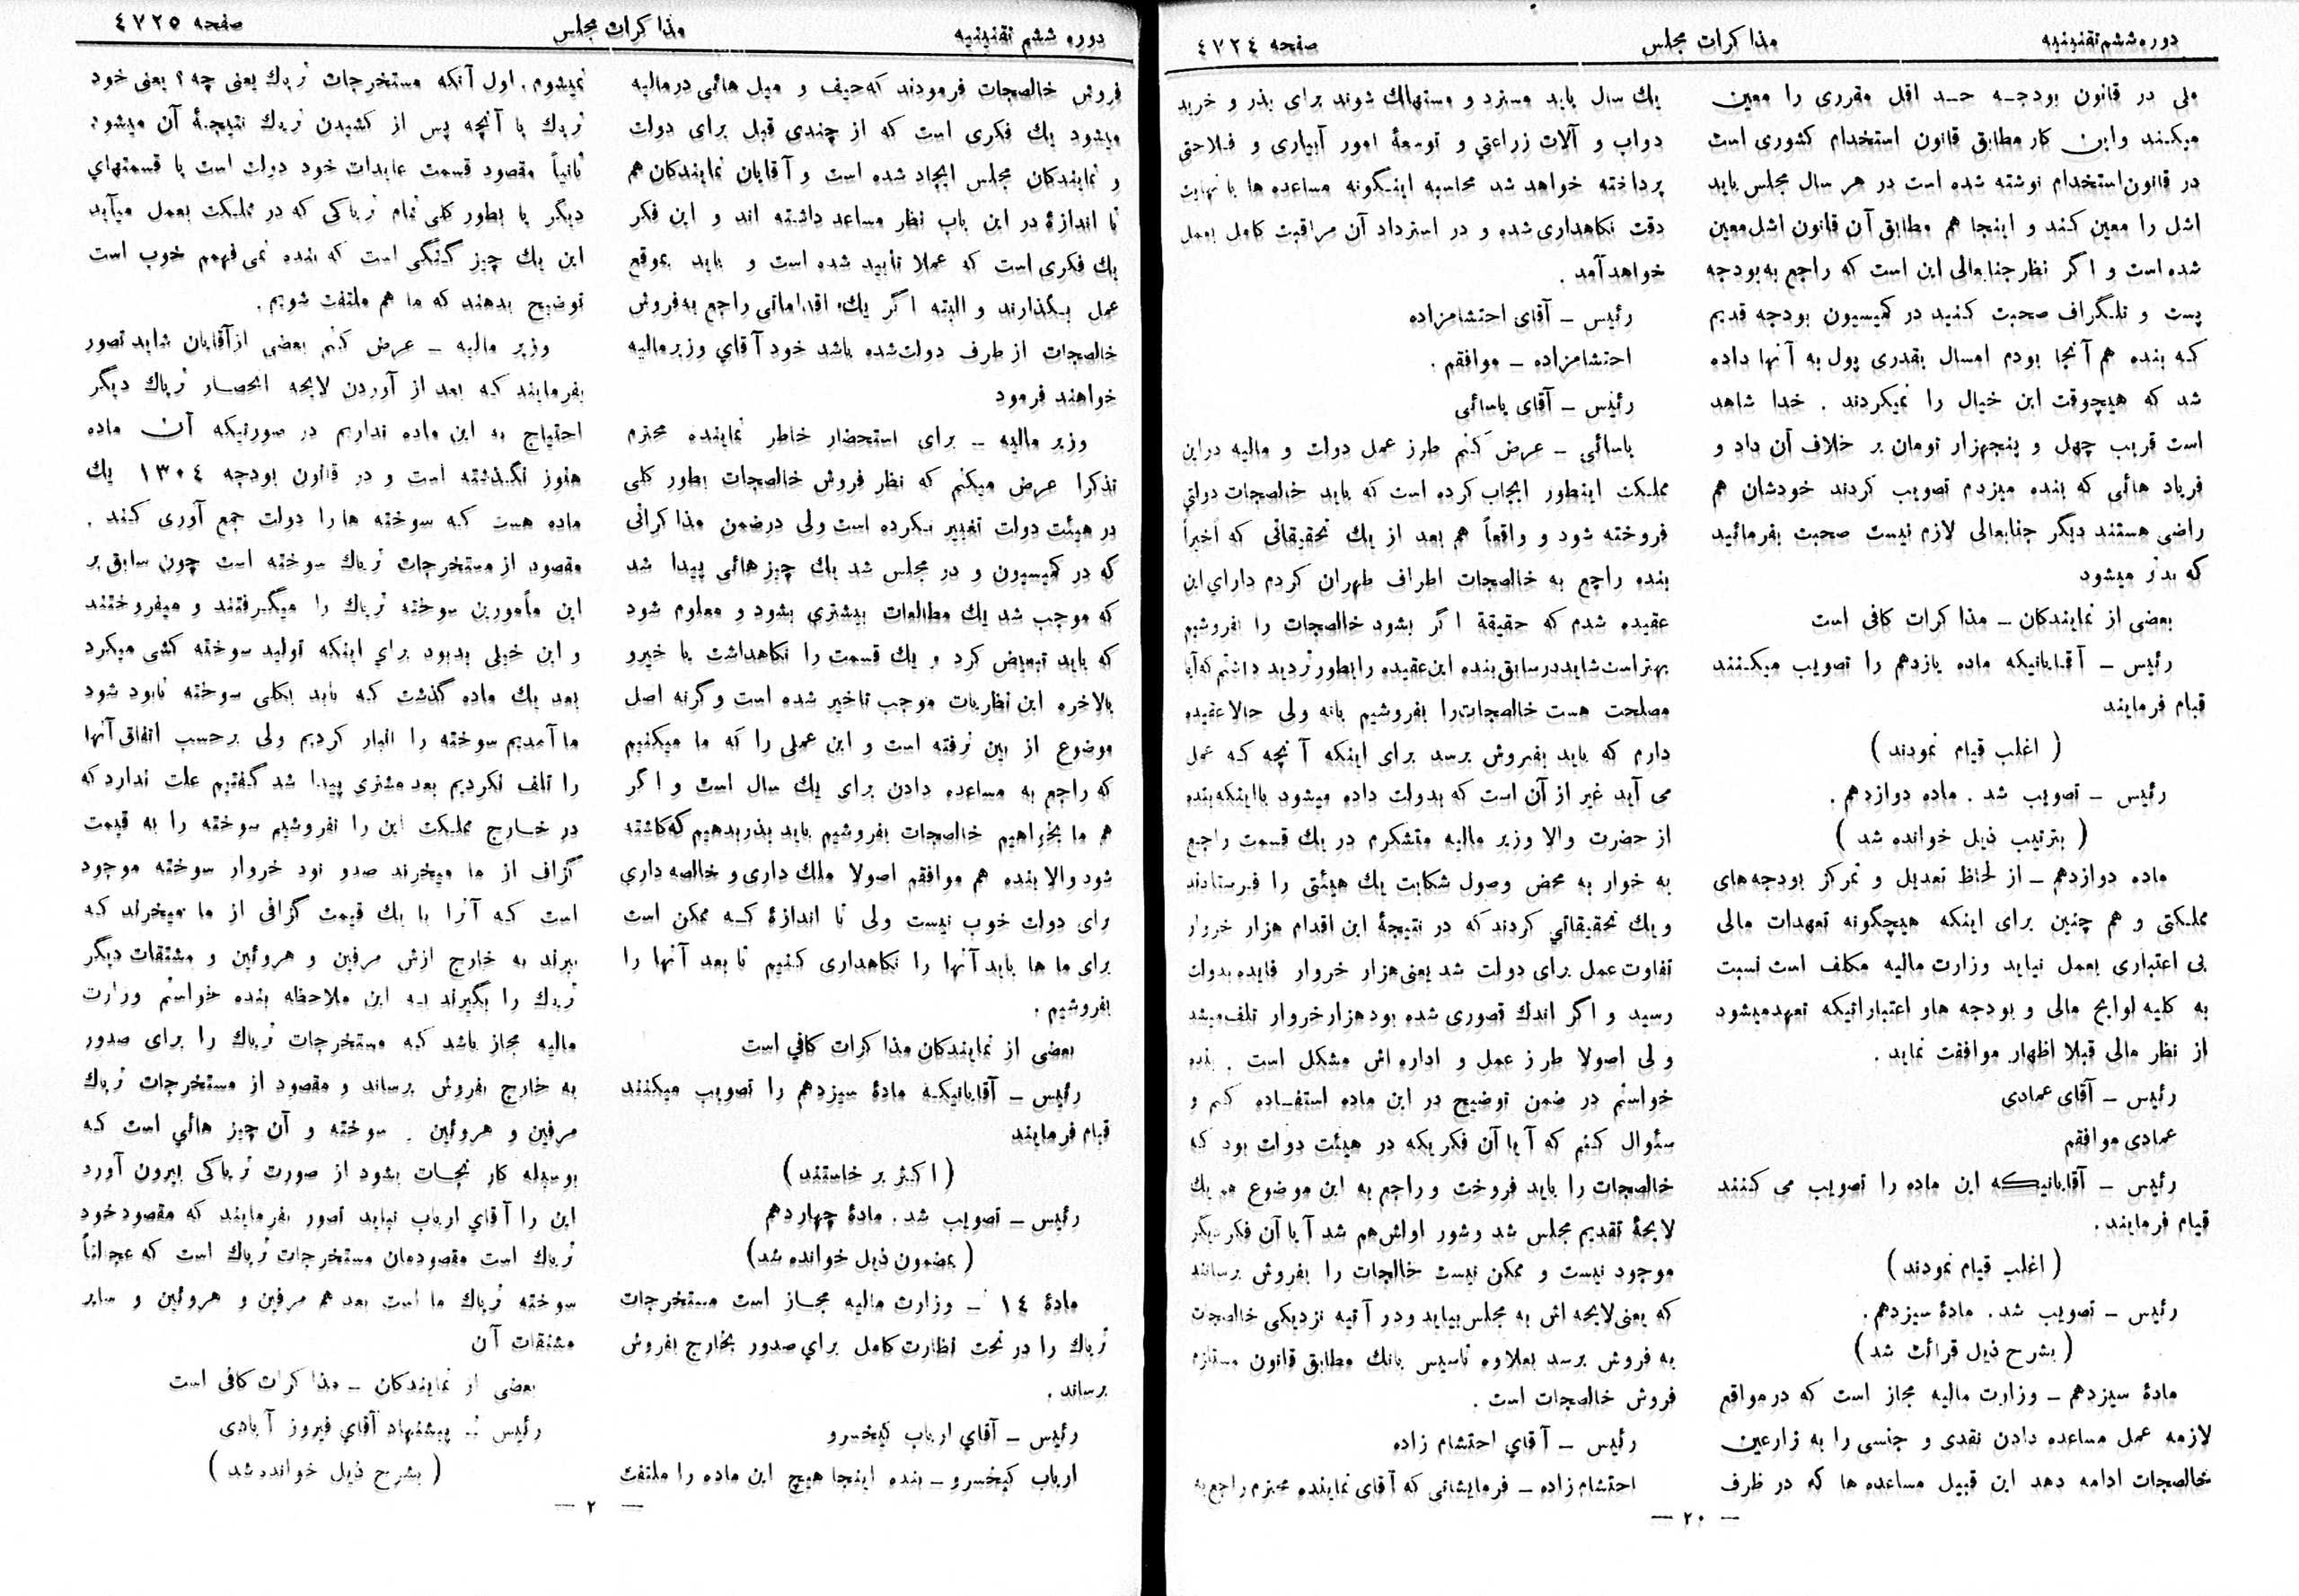 دوره ششم تقنینیه
مذاکرات مجلس
صفحه ٤٧٢٤
ملی در قانون بودجه حد اقل مقرری را معین
میکنند واین کار مطابق قانون استخدام کشوری است
در قانون استخدام نوشته شده است در هر سال مجلس باید
اشل را معین کند و اینجا هم مطابق آن قانون اشل معین
شده است و اگر نظر جنابعالی این است که راجع به بودجه
پست و تلگراف صحبت کنید در کمیسیون بودجه قدیم
که بنده هم آنجا بودم امسال بقدری پول به آنها داده
شد که هیچوقت این خیال را نمیکردند . خدا شاهد
است قریب چهل و پنجهزار تومان بر خلاف آن داد و
فریاد هائی که بنده میزدم تصویب کردند خودشان هم
راضی هستند دیگر جنابعالی لازم نیست صحبت بفرمائید
که بدتر میشود
بعضی از نمایندگان ـ مذاکرات کافی است
رئیس ـ آقایانیکه ماده یازدهم را تصویب میکنند
قیام فرمایند
( اغلب قیام نمودند )
رئیس ـ تصویب شد . ماده دوازدهم .
( بترتیب ذیل خوانده شد )
ماده دوازدهم ـ از لحاظ تعدیل و تمرکز بودجه‌های
مملکتی و هم چنین برای اینکه هیچگونه تعهدات مالی
بی اعتباری بعمل نیاید وزارت مالیه مکلف است نسبت
به کلیه لوایح مالی و بودجه هاو اعتباراتیکه تعهد میشود
از نظر مالی قبلا اظهار موافقت نماید .
رئیس ـ آقای عمادی
عمادی موافقم
رئیس ـ آقایانیکه این ماده را تصویب می کنند
قیام فرمایند .
( اغلب قیام نمودند )
رئیس ـ تصویب شد . مادهٔ سیزدهم .
( بشرح ذیل قرائت شد )
مادهٔ سیزدهم ـ وزارت مالیه مجاز است که در مواقع
لازمه عمل مساعده دادن نقدی و جنسی را به زارعین
خالصجات ادامه دهد این قبیل مساعده ها که در ظرف
یك سال باید مسترد و مستهلك شوند برای بذر و خرید
دواب و آلات زراعتي و توسعهٔ امور آبیاری و فلاحتی
پرداخته خواهد شد محاسبه اینگونه مساعده ها با نهایت
دقت نگاهداری شده و در استرداد آن مراقبت کامل بعمل
خواهد آمد .
رئیس ـ آقای احتشامزاده
احتشامزاده ـ موافقم .
رئیس ـ آقای یاسائی
یاسائي ـ عرض کنم طرز عمل دولت و مالیه دراین
مملکت اینطور ایجاب کرده است که باید خالصجات دولتي
فروخته شود و واقعاً هم بعد از یك تحقیقاتی که اخیراً
بنده راجع به خالصجات اطراف طهران کردم دارای این
عقیده شدم که حقیقة اگر بشود خالصجات را بفروشیم
بهتر است شاید در سابق بنده این عقیده را بطور تردید داشتم که آیا
مصلحت هست خالصجات‌را بفروشیم یانه ولی حالا عقیده
دارم که باید بفروش برسد برای اینکه آنچه که عمل
می آید غیر از آن است که بدولت داده میشود بااینکه بنده
از حضرت والا وزیر مالیه متشکرم در یك قسمت راجع
به خوار به محض وصول شکایت یك هیئتی را فرستادند
و یك تحقیقاتي کردند که در نتیجهٔ این اقدام هزار خروار
تفاوت عمل برای دولت شد یعنی هزار خروار فایده بدولت
رسید و اگر اندك تصوری شده بود هزار خروار تلف میشد
و لی اصولا طرز عمل و اداره اش مشکل است . بنده
خواستم در ضمن توضیح در این ماده استفاده کنم و
سئوال کنم که آیا آن فکریکه در هیئت دولت بود که
خالصجات را باید فروخت و راجع به این موضوع هم یك
لایحهٔ تقدیم مجلس شد و شور اولش‌هم شد آیا آن فکر دیگر
موجود نیست و ممکن نیست خالجات را بفروش برسانند
که یعنی لایحه اش به مجلس بیاید و در آتیه نزدیکی خالصجات
به فروش برسد بعلاوه تاسیس بانك مطابق قانون مستلزم
فروش خالصجات است .
رئیس ـ آقاي احتشام زاده
احتشام زاده ـ فرمایشاتی که آقای نماینده محترم راجع به
ـ ٢٠ ـ
دوره ششم تقنینیه
مذاکرات مجلس
صفحه ٤٧٢٥
فروش خالصجات فرمودند که حیف و میل هائی در مالیه
میشود یك فکری است که از چندی قبل برای دولت
و نمایندگان مجلس ایجاد شده است و آقایان نمایندگان هم
تا اندازهٔ در این باب نظر مساعد داشته اند و این فکر
یك فکری است که عملا تأیید شده است و باید بموقع
عمل بگذارند و البته اگر یك اقداماتی راجع به فروش
خالصجات از طرف دولت شده باشد خود آقاي وزیر مالیه
خواهند فرمود
وزیر مالیه ـ برای استحضار خاطر نماینده محترم
تذکرا عرض میکنم که نظر فروش خالصجات بطور کلی
در هیئت دولت تغییر نکرده است ولی درضمن مذاکراتی
که در کمیسیون و در مجلس شد یك چیز هائی پیدا شد
که موجب شد یك مطالعات بیشتري بشود و معلوم شود
که باید تبعیض کرد و یك قسمت را نگاهداشت یا خیرو
بالاخره این نظریات موجب تاخیر شده است و گرنه اصل
موضوع از بین نرفته است و این عملی را که ما میکنیم
که راجع به مساعده دادن برای یك سال است و اگر
هم ما بخواهیم خالصجات بفروشیم باید بذر بدهیم که کاشته
شود والا بنده هم موافقم اصولا ملك داری و خالصه داری
برای دولت خوب نیست ولی تا اندازهٔ که ممکن است
برای ما ها باید آنها را نگاهداری کنیم تا بعد آنها را
بفروشیم .
بعضی از نمایندگان مذاکرات کافي است
رئیس ـ آقایانیکه مادهٔ سیزدهم را تصویب میکنند
قیام فرمایند
( اکثر بر خاستند )
رئیس ـ تصویب شد . مادهٔ چهاردهم
( بمضمون ذیل خوانده شد )
مادهٔ ١٤ ـ وزارت مالیه مجاز است مستخرجات
تریاك را در تحت نظارت کامل براي صدور بخارج بفروش
برساند .
رئیس ـ آقاي ارباب کیخسرو
ارباب کیخسرو ـ بنده اینجا هیچ این ماده را ملتفت
نمیشوم . اول آنکه مستخرجات تریاك یعنی چه ؟ یعنی خود
تریاك یا آنچه پس از کشیدن تریاك نتیجهٔ آن میشود
ثانیاً مقصود قسمت عایدات خود دولت است یا قسمتهاي
دیگر یا بطور کلی تمام تریاکی که در مملکت بعمل میآید
این یك چیز گنگی است که بنده نمی فهمم خوب است
توضیح بدهند که ما هم ملتفت شویم .
وزیر مالیه ـ عرض کنم بعضی از آقایان شاید تصور
بفرمایند که بعد از آوردن لایحه انحصار تریاك دیگر
احتیاج به این ماده نداریم در صورتیکه آن ماده
هنوز نگذشته است و در قانون بودجه ١٣٠٤ یك
ماده هست که سوخته ها را دولت جمع آوری کند .
مقصود از مستخرجات تریاك سوخته است چون سابق بر
این مأمورین سوخته تریاك را میگرفتند و میفروختند
و این خیلی بدبود براي اینکه تولید سوخته کشی میکرد
بعد یك ماده گذشت که باید بکلی سوخته نابود شود
ما آمدیم سوخته را انبار کردیم ولی برحسب اتفاق آنها
را تلف نکردیم بعد مشتری پیدا شد گفتیم علت ندارد که
در خارج مملکت این را نفروشیم سوخته را به قیمت
گزاف از ما میخرند صدو نود خروار سوخته موجود
است که آنرا با یك قیمت گزافی از ما میخرند که
ببرند به خارج ازش مرفین و هروئین و مشتقات دیگر
تریاك را بگیرند به این ملاحظه بنده خواستم وزارت
مالیه مجاز باشد که مستخرجات تریاك را برای صدور
به خارج بفروش برساند و مقصود از مستخرجات تریاك
مرفین و هروئین . سوخته و آن چیز هائي است که
بوسیله کار نجات بشود از صورت تریاکی بیرون آورد
این را آقاي ارباب نباید تصور بفرمایند که مقصود خود
تریاك است مقصودمان مستخرجات تریاك است که عجالتاً
سوخته تریاك ما است بعد هم مرفین و هروئین و سایر
مشتقات آن
بعضی از نمایندگان ـ مذاکرات کافی است
رئیس ـ پیشنهاد آقاي فیروز آبادی
( بشرح ذیل خوانده شد )